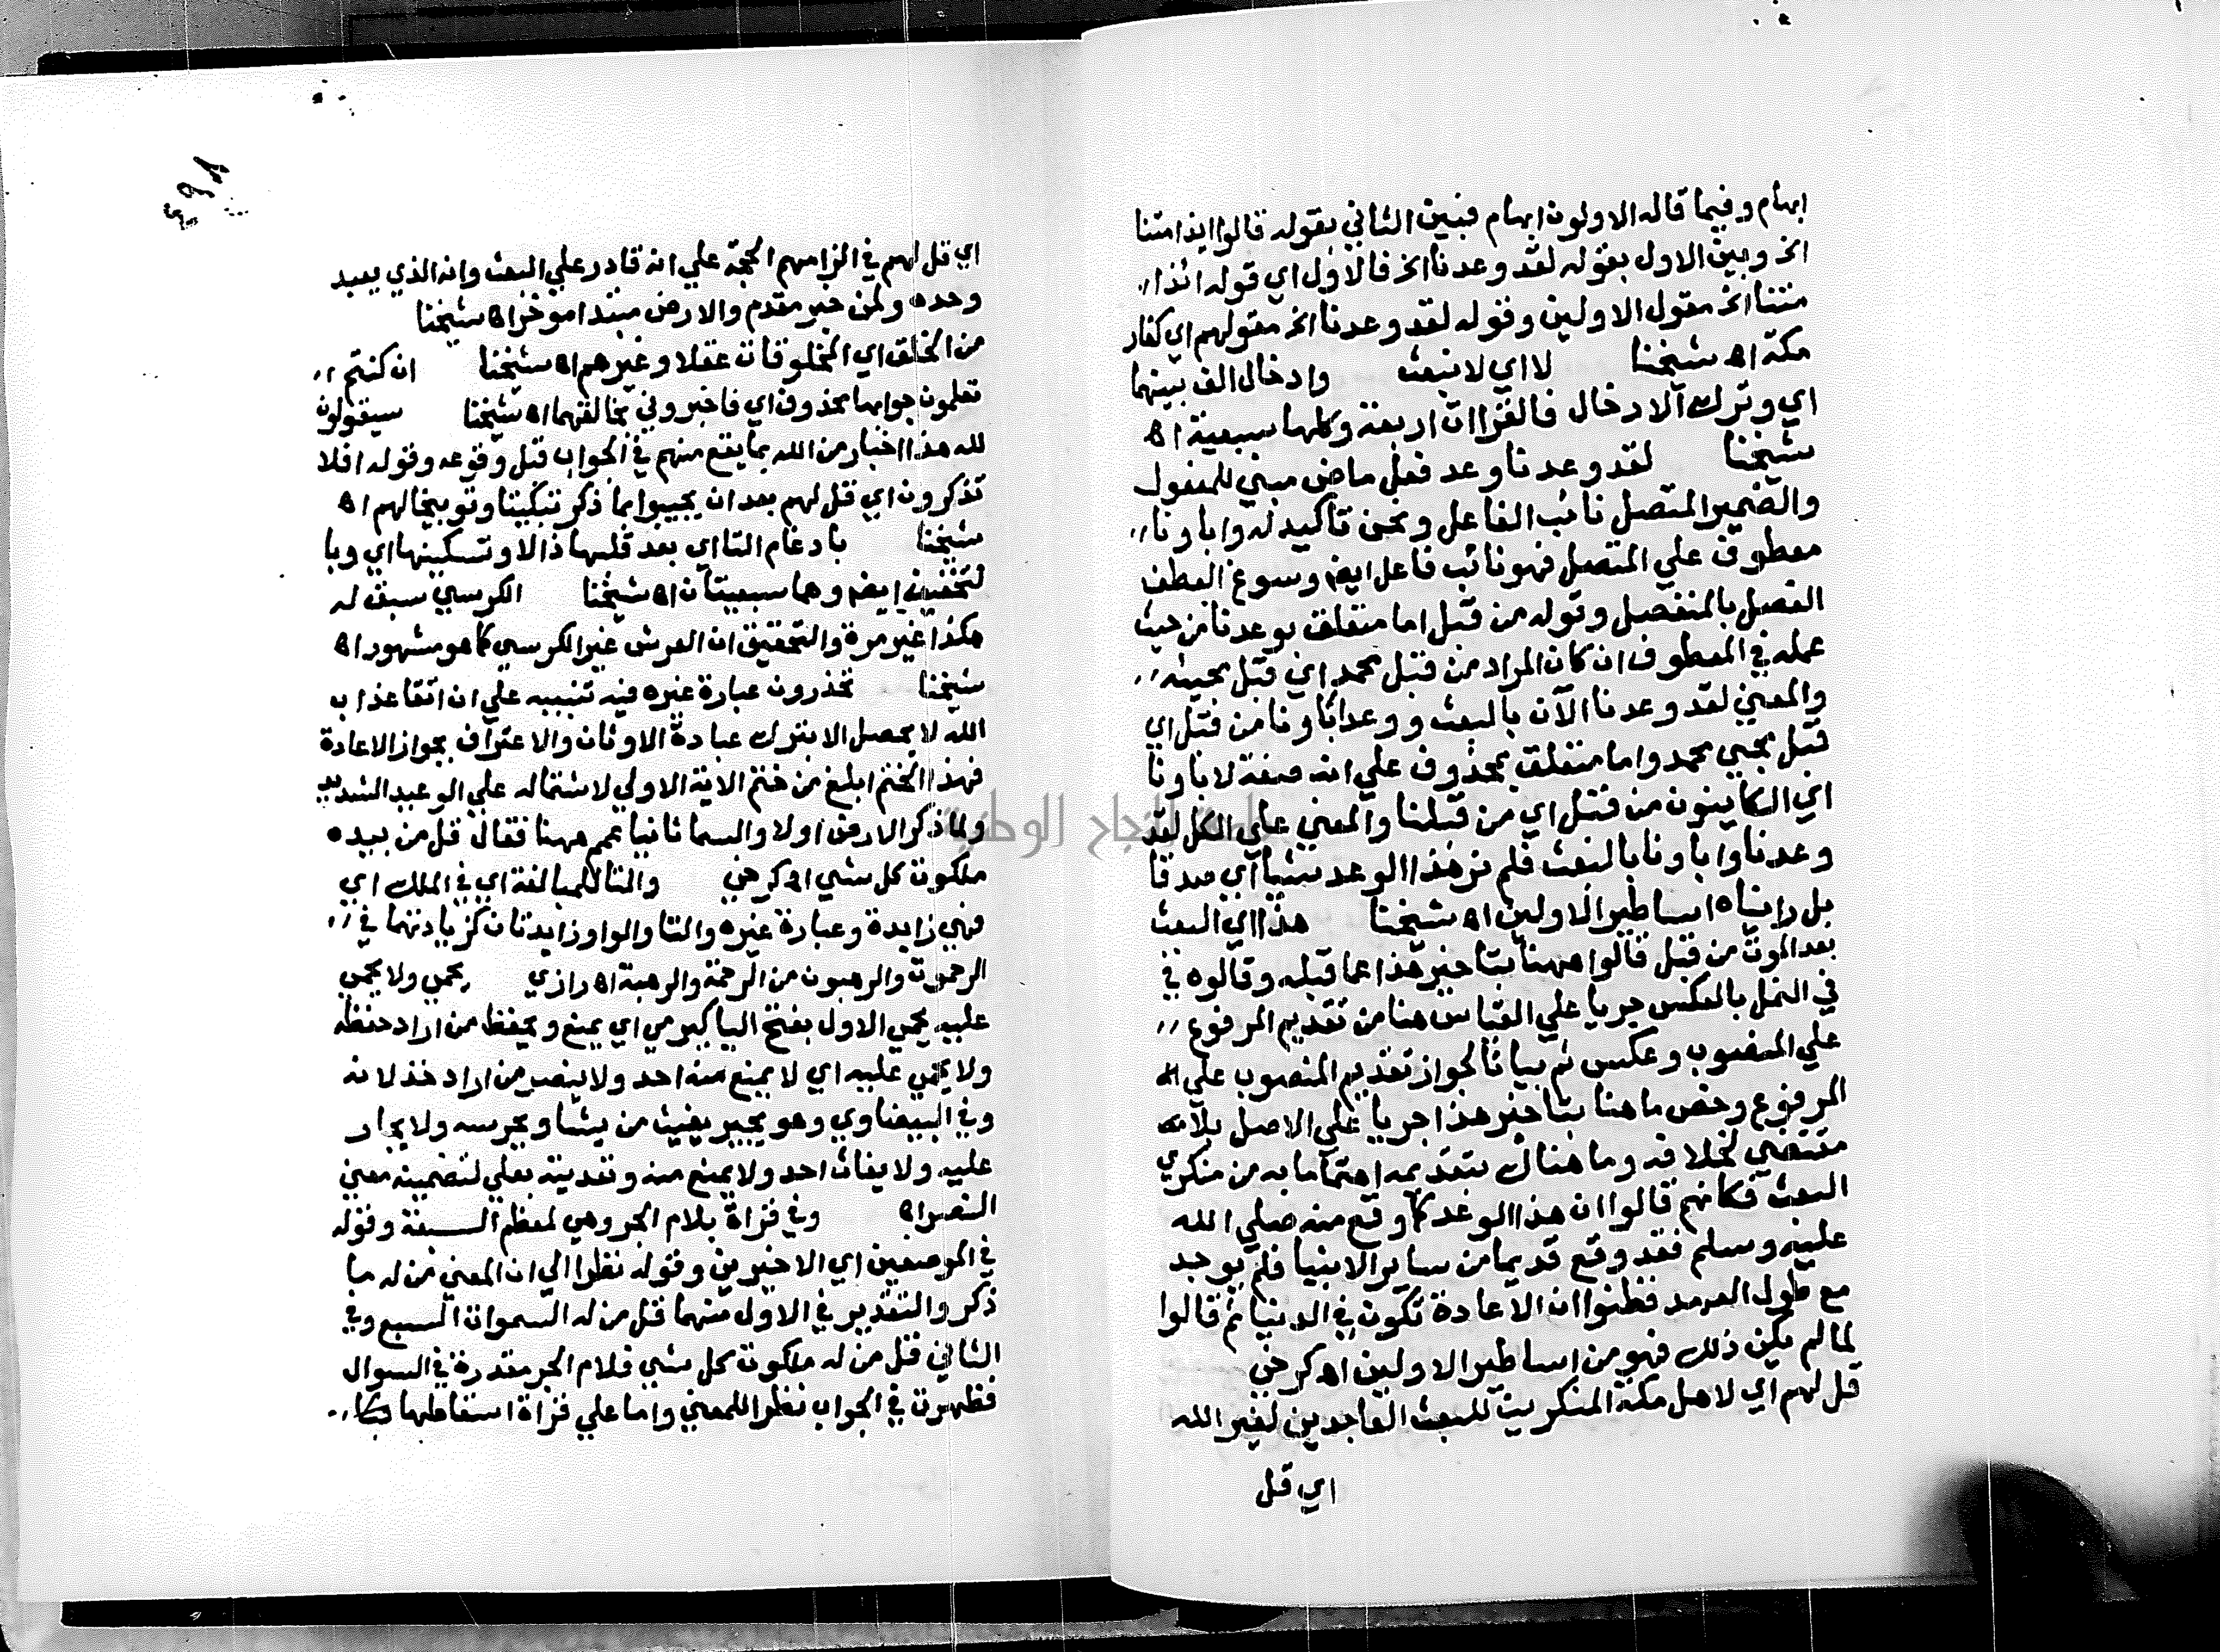 ابهام وفيما قاله الاولون ابهام فبين الثاني بقوله قالوا ايذا متنا
الخ وبين الاول بقوله لقد وعدنا الخ فالاول اي قوله ائذا
متنا الخ مقول الاولين وقوله لقد وعدنا الخ مقولهم اي كفار
مكة اه شيخنا لا اي لا نبعث وادخال الف بينهما
اي وترك الادخال فالقراات اربعة وكلها سبعية اه
شيخنا لقد وعدنا وعد فعل ماض مبني للمفعول
والضمير المتصل نائب الفاعل ونحن تاكيد له واباونا
معطوف علي المتصل فهو نائب فاعل ايضا وسوغ العطف
الفصل بالمنفصل وقوله من قبل اما متعلق بوعدنا من حيث
عمله في المعطوف ان كان المراد من قبل محمد اي قبل مجيئه
والمعني لقد وعدنا الآن بالبعث ووعد اباونا من قبل اي
قبل مجيي محمد واما متعلق بمحذوف علي انه صفة لاباونا
اي الكاينون من قبل اي من قبلنا والمعني علي الكل لقد
وعدنا واباونا بالبعث فلم نر هذا الوعد شيا اي صدقا
بل رايناه اساطير الاولين اه شيخنا هذا اي البعث
بعد الموت من قبل قالوا ههنا بتاخير هذا عما قبله وقالوه في
في النمل بالعكس جريا علي القياس هنا من تقديم المرفوع
علي المنصوب وعكس ثم بيانا لجواز تقديم المنصوب علي
المرفوع وخص ما هنا بتاخير هذا جريا علي الاصل بلا
مقتضي لخلافه وما هناك بتقديمه اهتماما به من منكري
البعث فكانهم قالوا ان هذا الوعد كما وقع منه صلي الله
عليه وسلم فقد وقع قديما من ساير الانبيا فلم يوجد
مع طول العهد فظنوا ان الاعادة تكون في الدنيا ثم قالوا
لما لم يكن ذلك فهو من اساطير الاولين اه كرخي
قل لهم اي لاهل مكة المنكرين للبعث العابدين لغير الله
اي قل
اي قل لهم في الزامهم الحجة علي انه قادر علي البعث وانه الذي يعبد
وحده ولمن خبر مقدم والارض مبتدا موخر اه شيخنا
من الخلق اي المخلوقات عقلا وغيرهم اه شيخنا ان كنتم
تعلمون جوابها محذوف اي فاخبروني بخالقهما اه شيخنا سيقولون
لله هذا اخبار من الله بما يقع منهم في الجواب قبل وقوعه وقوله افلا
تذكرون اي قل لهم بعد ان يجيبوا بما ذكر تبكيتا وتوبيخا لهم اه
شيخنا بادغام التا اي بعد قلبها ذالا وتسكينها اي وبا
لتخفيف ايضا وهما سبعيتان اه شيخنا الكرسي سبق له
هكذا غير مرة والتحقيق ان العرش غير الكرسي كما هو مشهور اه
شيخنا تحذرون عبارة غيره فيه تنبيه علي ان اتقا عذاب
الله لا يحصل الا بترك عبادة الاوثان والاعتراف بجواز الاعادة
فهذا الختم ابلغ من ختم الاية الاولي لاشتماله علي الوعيد الشديد
ولما ذكر الارض اولا والسما ثانيا عمم ههنا فقال قل من بيده
ملكوت كل شي اه كرخي والتا للمبالغة اي في الملك اي
فهي زايدة وعبارة غيره والتا والواو زايدتان كزيادتهما في
الرحموت والرهبوت من الرحمة والرهبة اه رازي يحمي ولا يحمي
عليه يحمي الاول بفتح اليا كيرمي اي يمنع ويحفظ من اراد حفظه
ولا يحمي عليه اي لا يمنع منه احد ولا ينصر من اراد خذلانه
وفي البيضاوي وهو يجير يغيث من يشا ويحرسه ولا يجار
عليه ولا يغاث احد ولا يمنع منه وتعديته بعلي لتضمينه معني
النصر اه وفي قراة بلام الجر وهي لمعظم السبعة وقوله
في الموضعين اي الاخيرين وقوله نظرا الي ان المعني من له ما
ذكر والتقدير في الاول منهما قل من له السموات السبع وفي
الثاني قل من له ملكوت كل شي فلام الجر مقدرة في السوال
فظهرت في الجواب نظرا للمعني واما علي قراة اسقاطها